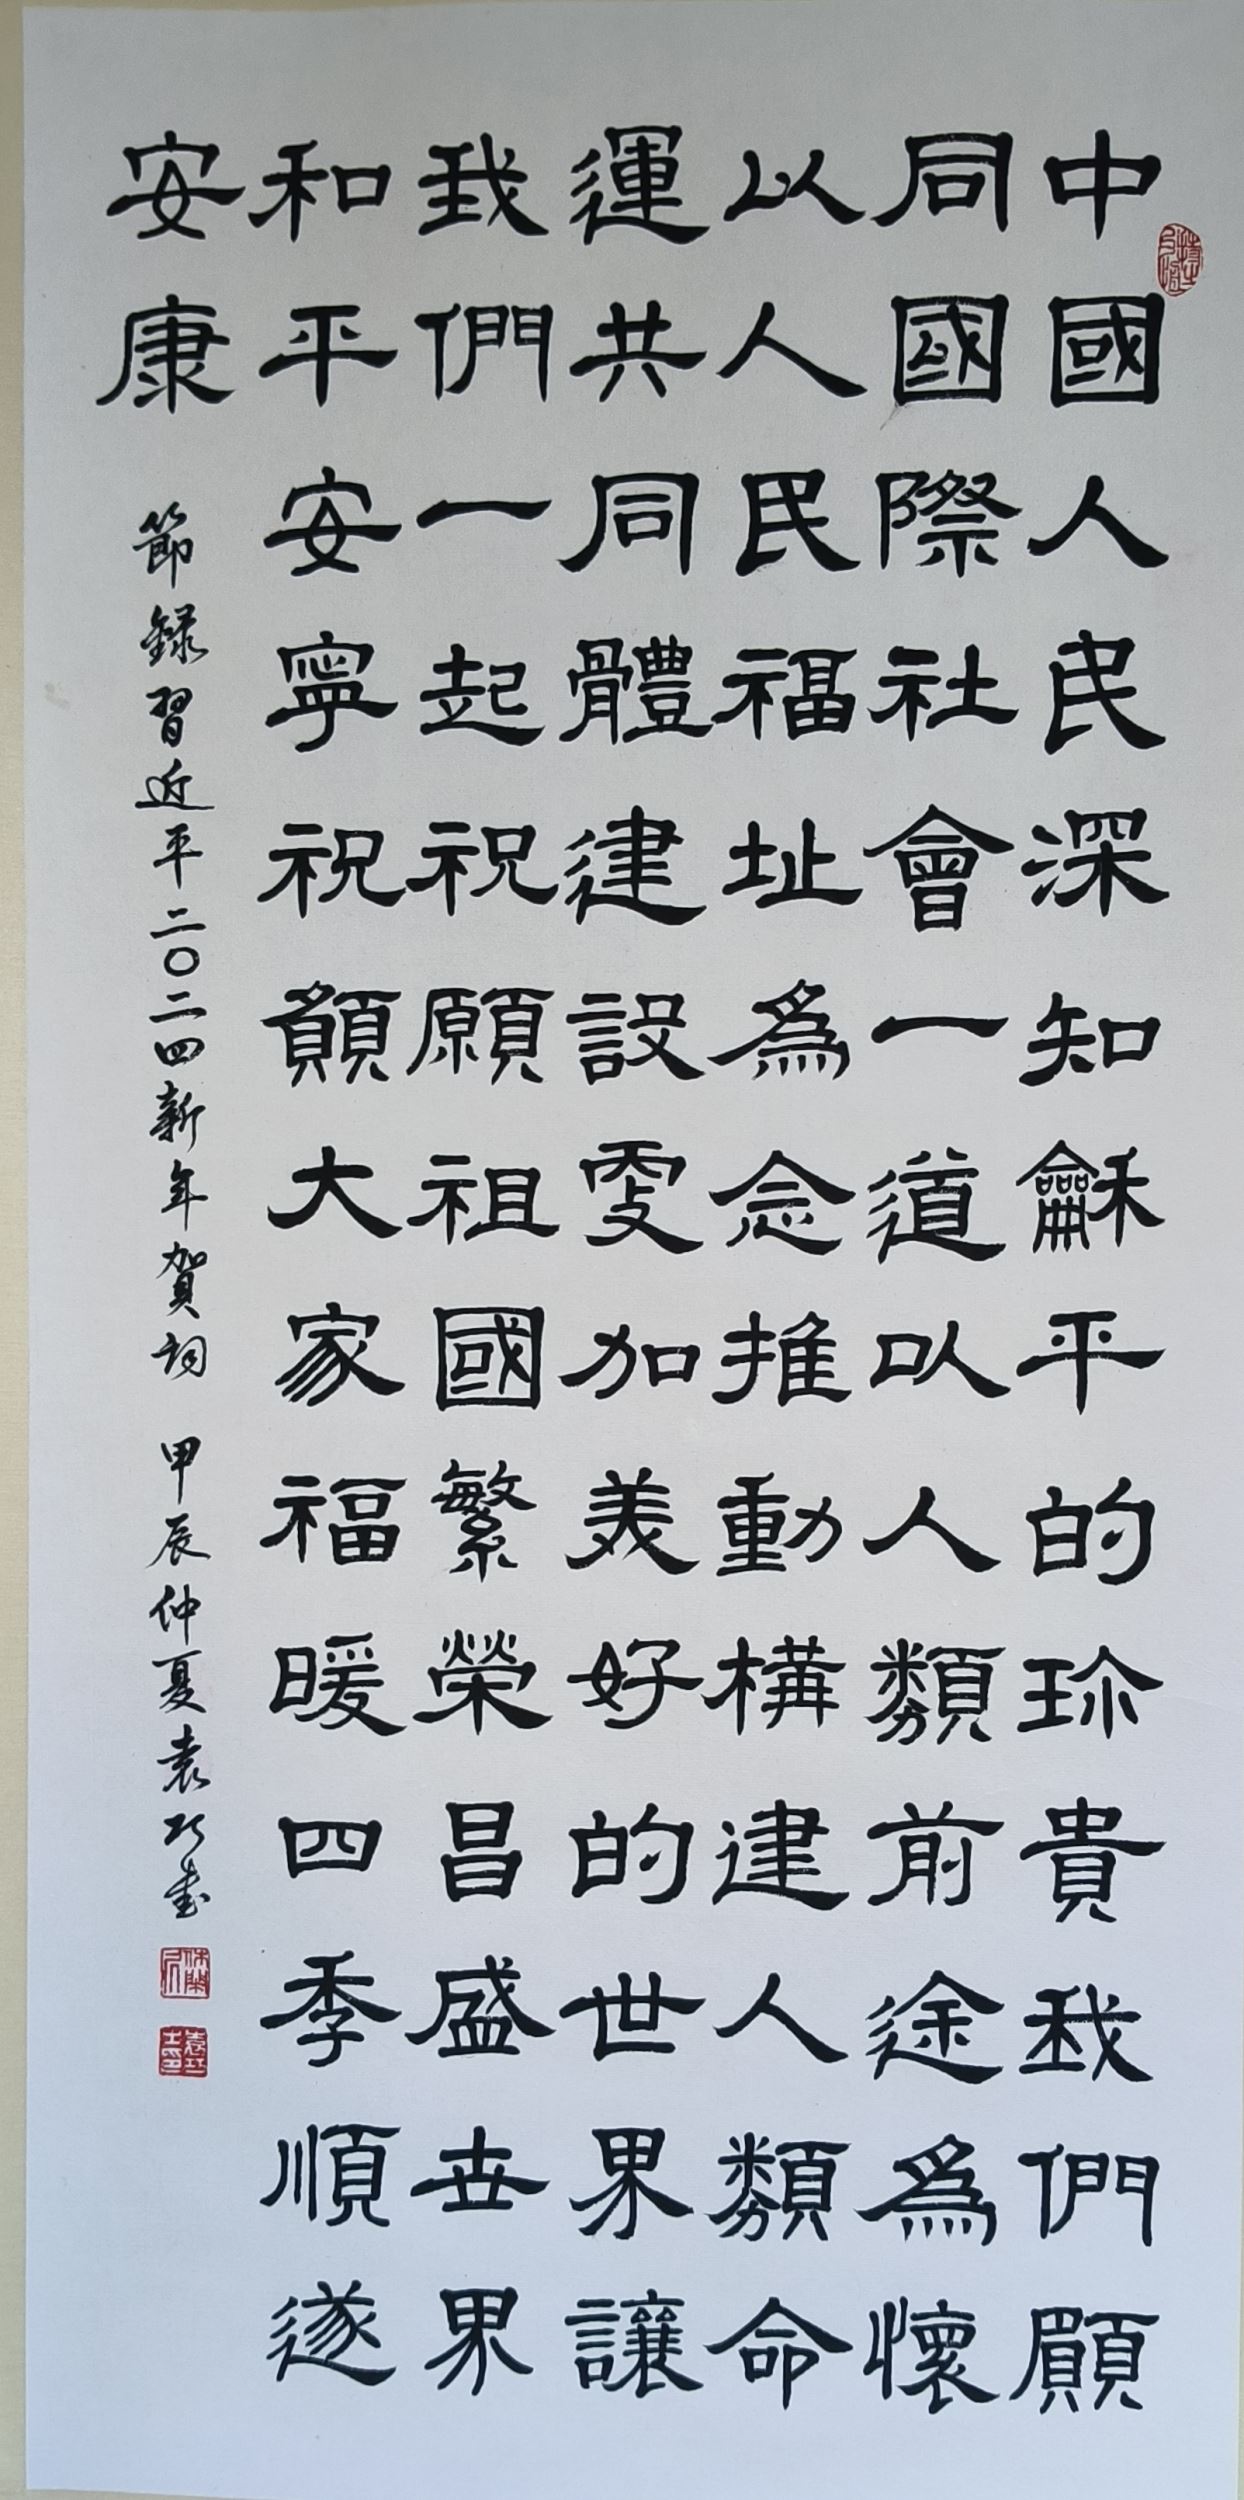 中國人民深知龢平的珎貴我們願
同國際社會一道以人類前途爲懷
以人民福址爲念推動構建人類命
運共同體建設更加美好的世界讓
我們一起祝願祖國繁榮昌盛世界
和平安寧祝願大家福暖四季順遂
安康
節錄習近平二〇二四新年賀詞 甲辰仲夏袁巧書